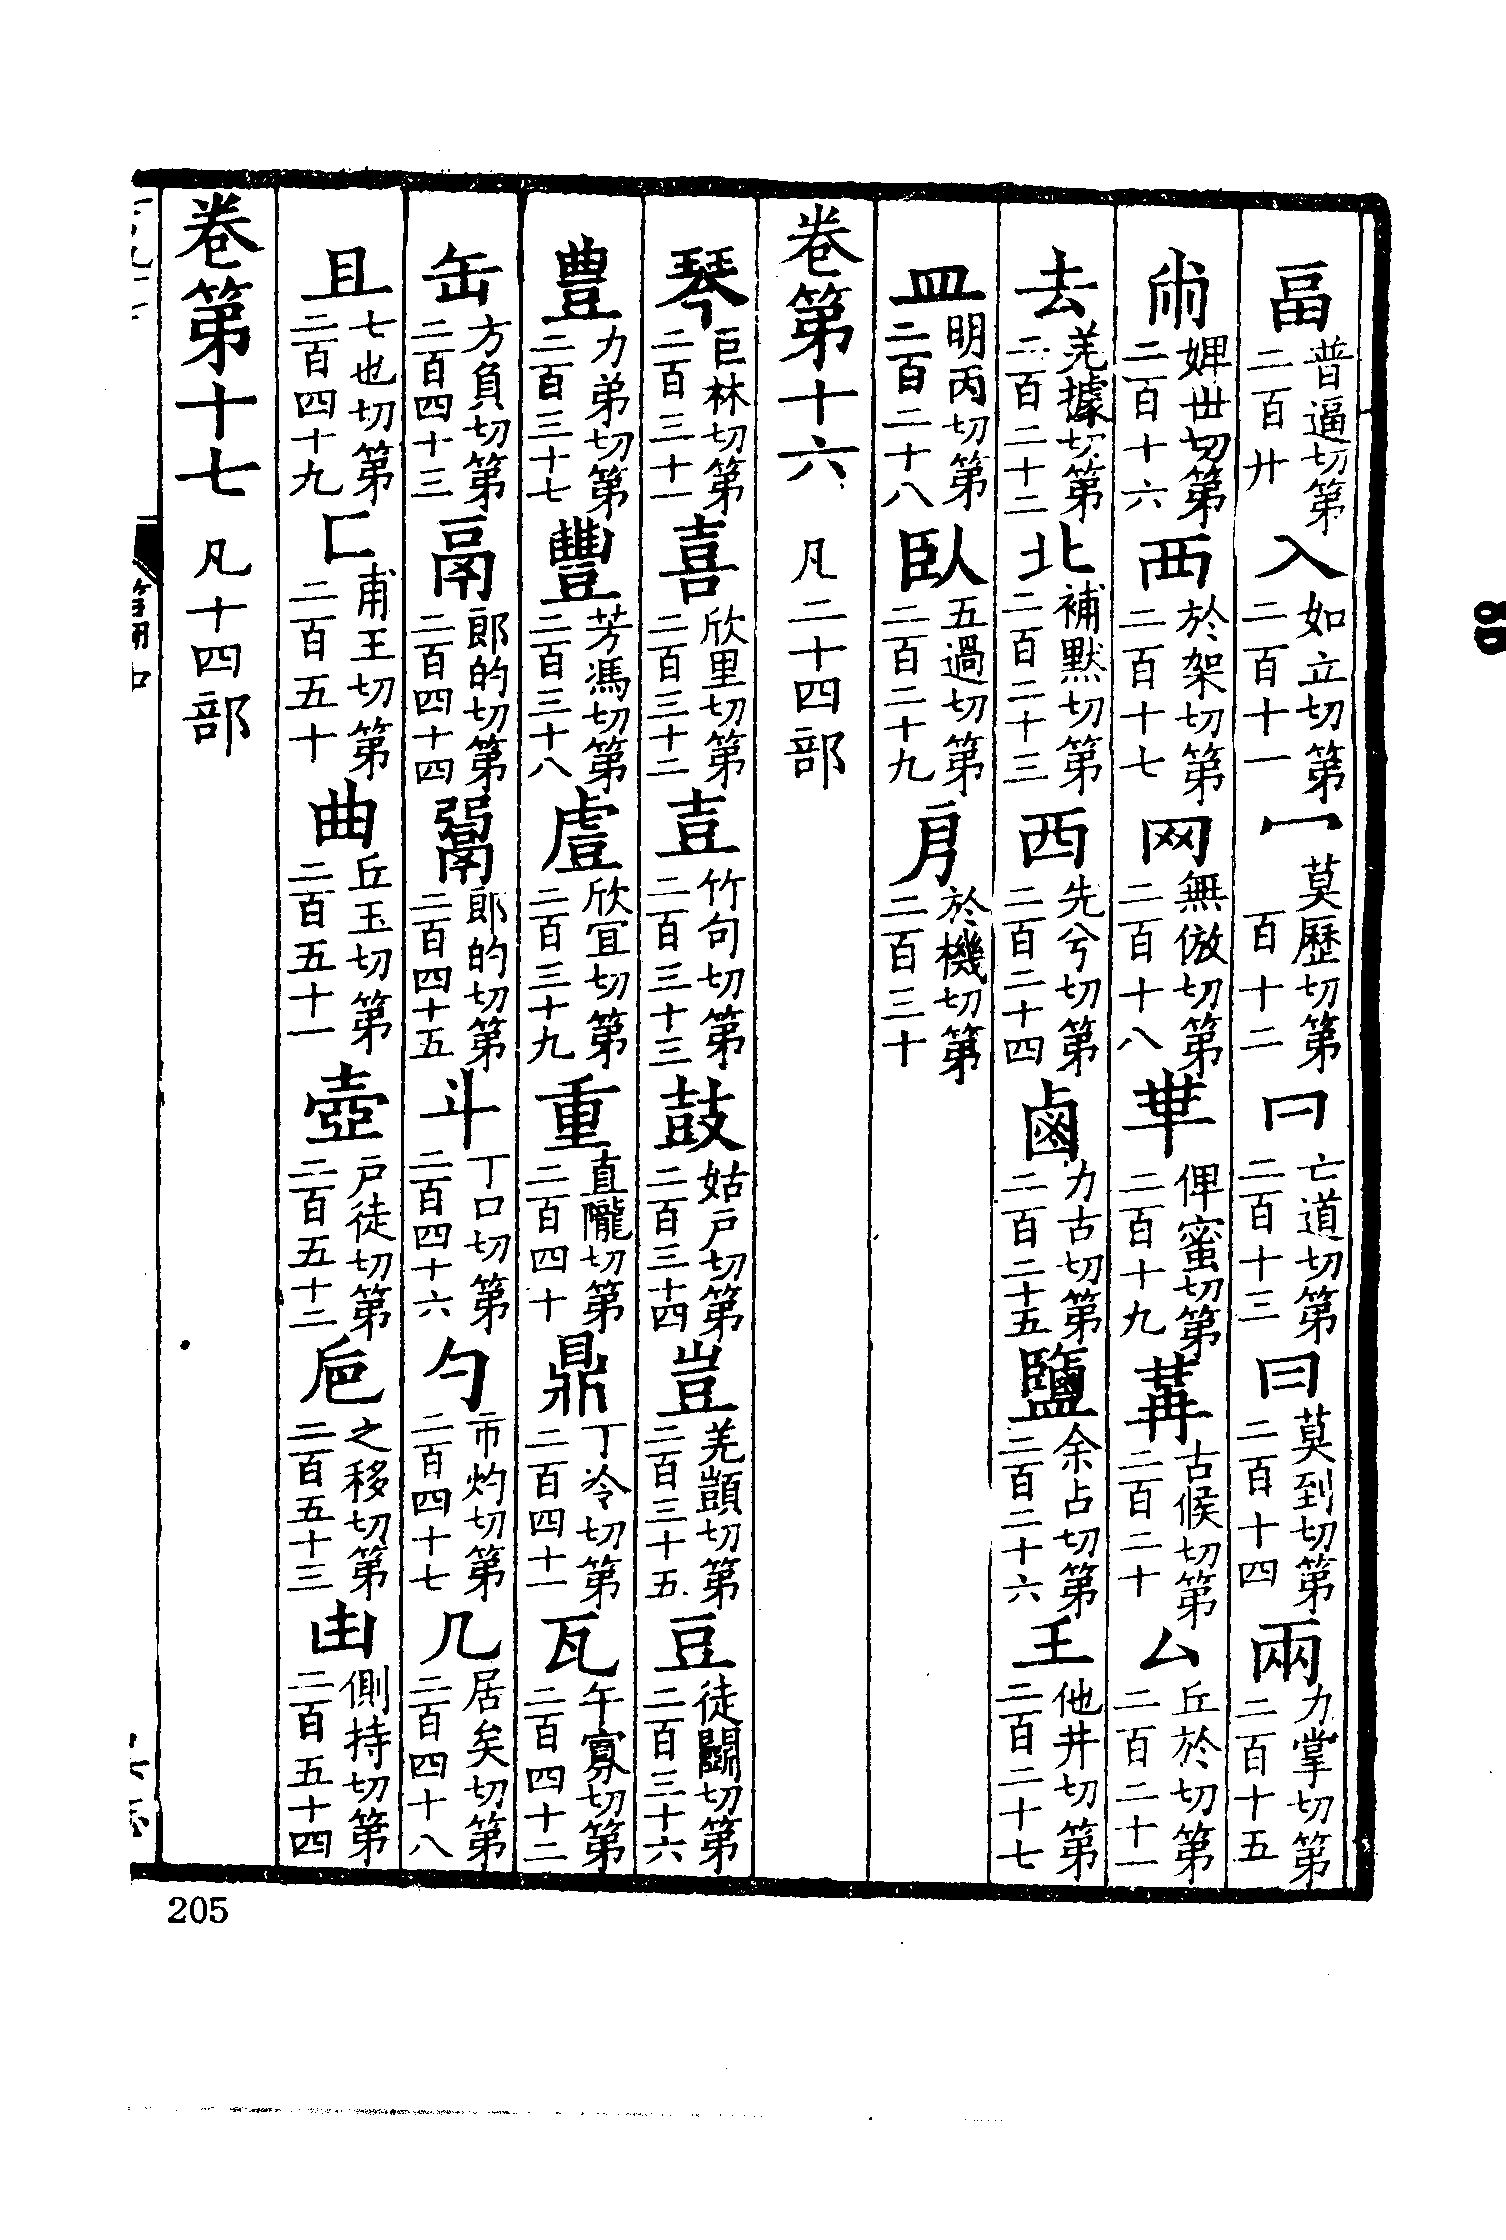 畐普逼切第二百卄入如立切第二百十一冖莫歷切第百十二冃亡道切第二百十三冃莫到切第二百十四兩力掌切第二百十五
㡀婢世切第二百十六襾於架切第二百十七网無倣切第二百十八華俾蜜切第二百十九冓古候切第二百二十厶丘於切第二百二十一
去羌據切第二百二十二北補默切第二百二十三西先兮切第二百二十四鹵力古切第二百二十五鹽余占切第二百二十六𡈼他井切第二百二十七
皿明丙切第二百二十八臥五過切第二百二十九㐆於機切第二百三十
卷第十六 凡二十四部
琴巨林切第二百三十一喜欣里切第二百三十二壴竹句切第二百三十三鼓姑戶切第二百三十四豈羌顗切第二百三十五豆徒鬭切第二百三十六
豊力弟切第二百三十七豐芳馮切第二百三十八䖒欣宜切第二百三十九重直隴切第二百四十鼎丁冷切第二百四十一瓦午寡切第二百四十二
缶方負切第二百四十三鬲郎的切第二百四十四䰜郎的切第二百四十五斗丁口切第二百四十六勺市灼切第二百四十七几居矣切第二百四十八
且七也切第二百四十九匚甫王切第二百五十曲丘玉切第二百五十一壺戶徒切第二百五十二巵之移切第二百五十三甾側持切第二百五十四
卷第十七 凡十四部
205